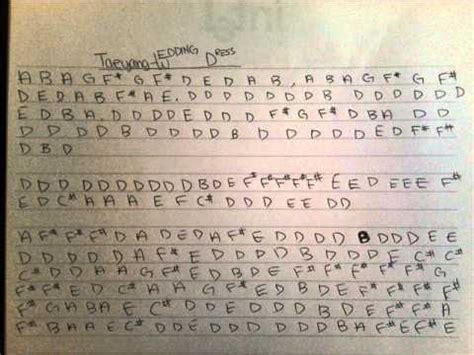 Taeyang-WEDDING DRESS
A B A G F# G F# D E D A B, A B A G F# G F#
D E D A B F# A E. D D D D D D D B D D D D D D
E D B A. D D D D E D D D F# G F# D B A D D
D D D D D B D D D D B D D D D D D E D F# F#
D B D
D D D D D D D D D D B D E F# F# F# F# F# E E D E E E F#
E D C# A A A E F C# D D D E E D D
A F# F# F# D A D E D A F# E D D D D B D D D E E
D D D D D A F# E D D D D B D D D E C# C#
C# D D A A G F# E D B D E F# F# F# F# F# G
F# F# E D C# A A A G F# E D B D E F# F# F#
F# G A B A E C# D D E D D D D B D E F# F# A
F# B A A E C# D D E D D D D D B A F# E F# E